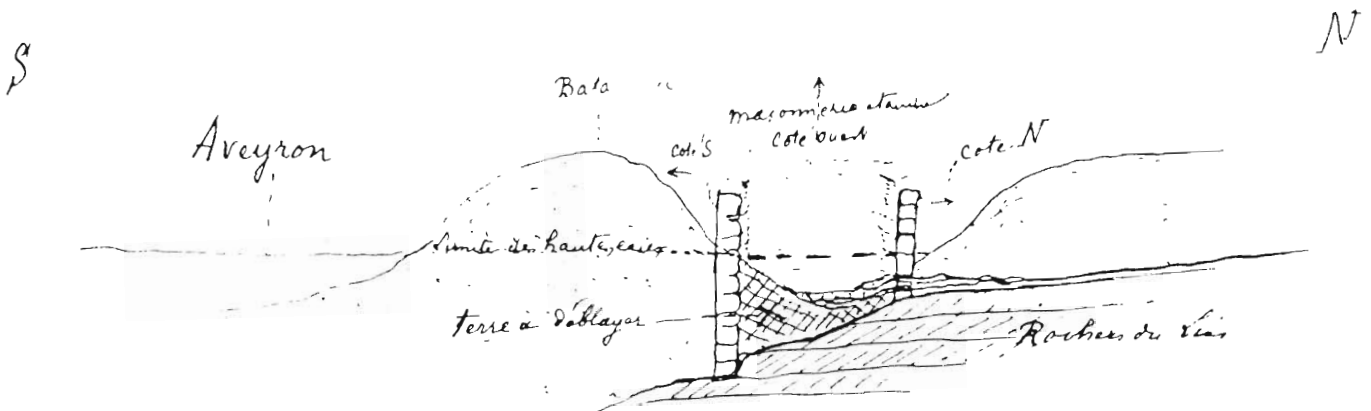 S
N
Aveyron
coté S
maçonnerie
coté ouest
cote N
Limite des hautes eaux
terre à déblayer
Rochers du Lias